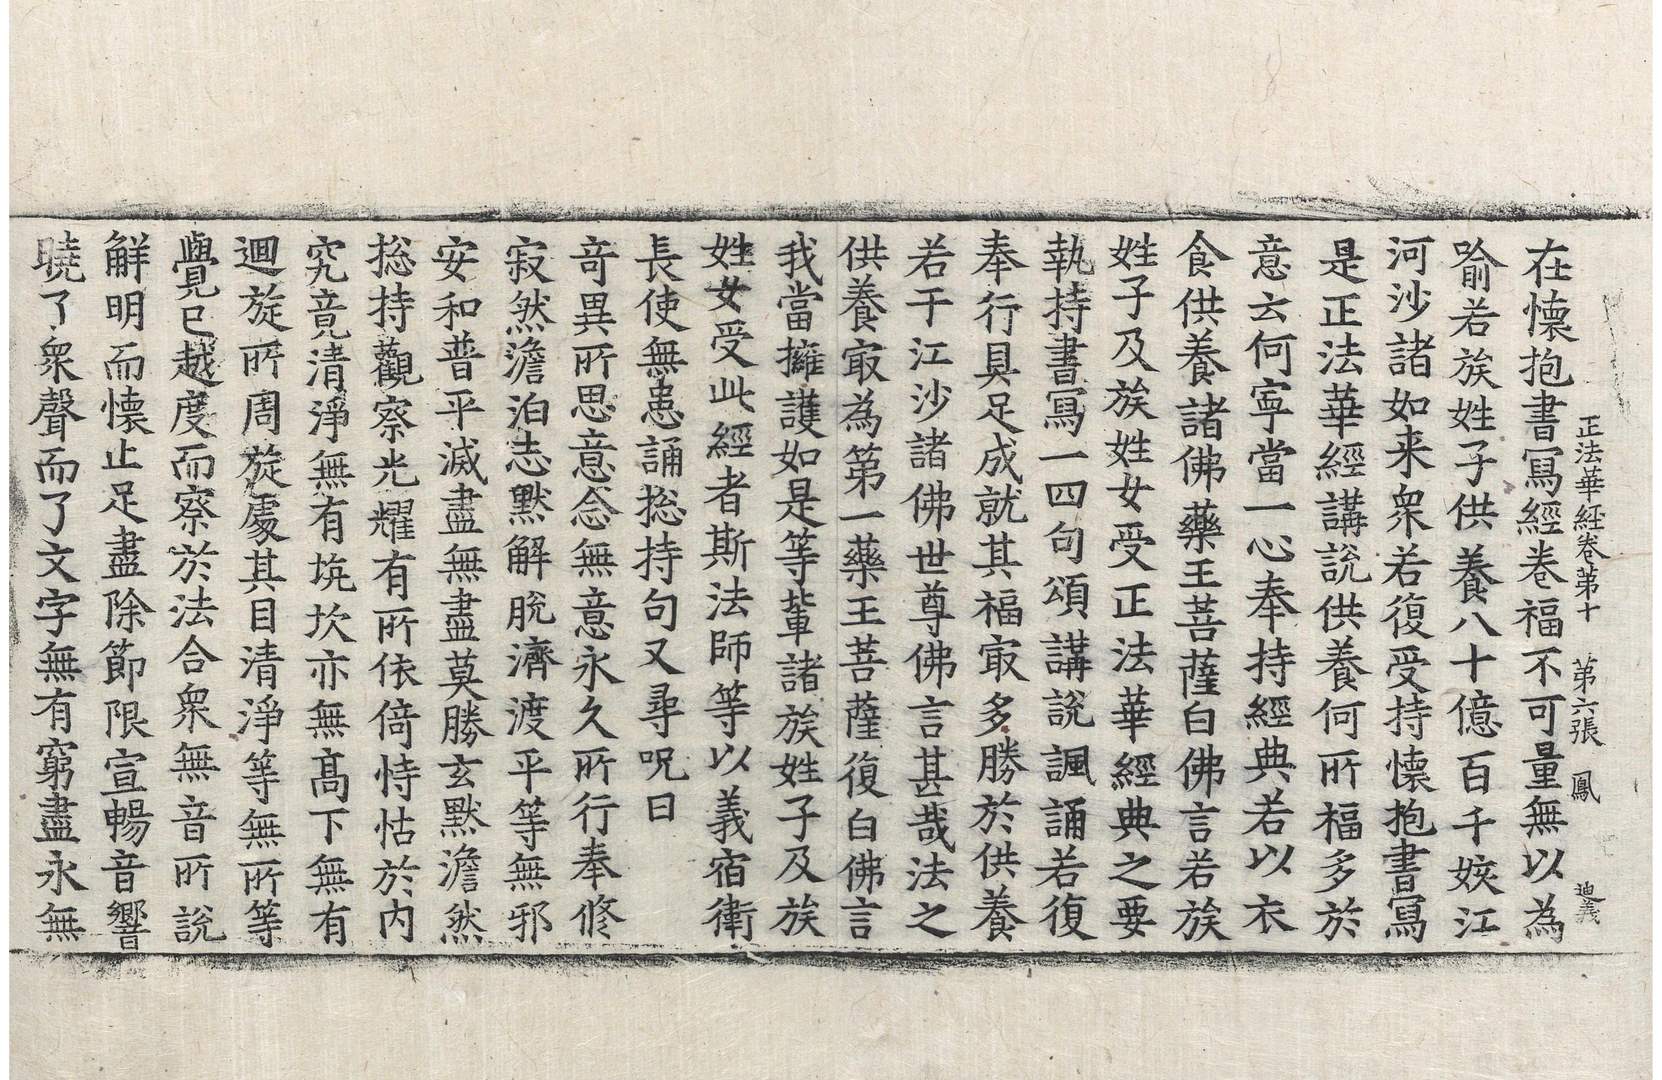 正法華経卷第十 第六張 鳳 迪義
在懷抱書寫經卷福不可量無以為
喻若族姓子供養八十億百千姟江
河沙諸如来衆若復受持懷抱書寫
是正法華經講說供養何所福多於
意云何寧當一心奉持經典若以衣
食供養諸佛藥王菩薩白佛言若族
姓子及族姓女受正法華經典之要
執持書寫一四句頌講說諷誦若復
奉行具足成就其福㝡多勝於供養
若干江沙諸佛世尊佛言甚哉法之
供養㝡為第一藥王菩薩復白佛言
我當擁護如是等輩諸族姓子及族
姓女受此經者斯法師等以義宿衛
長使無患誦捴持句又尋呪曰
竒異所思意念無意永久所行奉修
寂然澹泊志默解脫濟渡平等無邪
安和普平滅盡無盡莫勝玄默澹然
捴持觀察光耀有所依倚恃怙於内
究竟清淨無有坑坎亦無髙下無有
迴旋所周旋處其目清淨等無所等
覺已越度而察於法合衆無音所說
解明而懷止足盡除節限宣暢音響
曉了衆聲而了文字無有窮盡永無